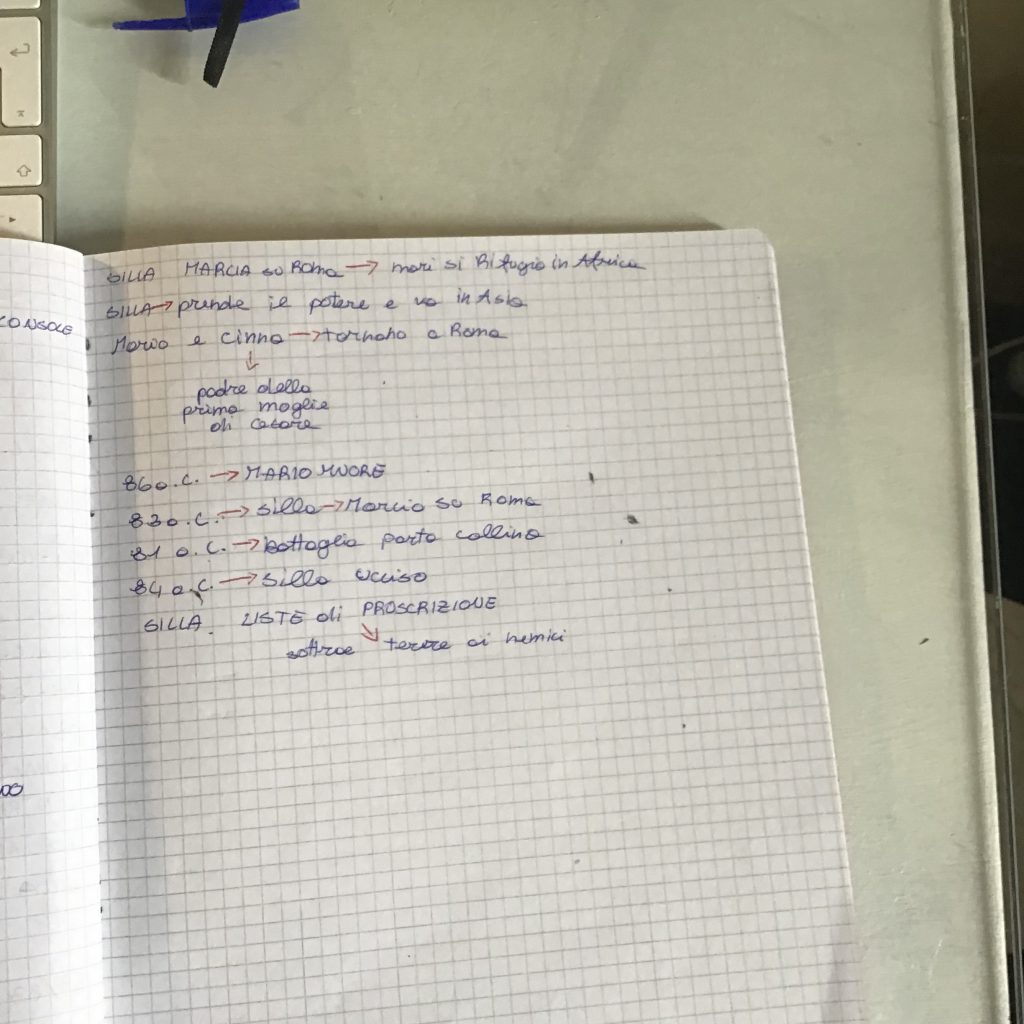 CONSOLE
SILLA MARCIA su Roma → mari si Rifugia in Africa
SILLA → prende il potere e va in Asia
Mario e cinna → tornano a Roma
↓
padre della
prima moglie
di cesare
86 a.C. → MARIO MUORE
83 a.C. → silla → Marcia su Roma
81 a.C. → battaglia porta collina
84 a.C. → silla ucciso
SILLA LISTE di PROSCRIZIONE
↘
sottrae terre ai nemici